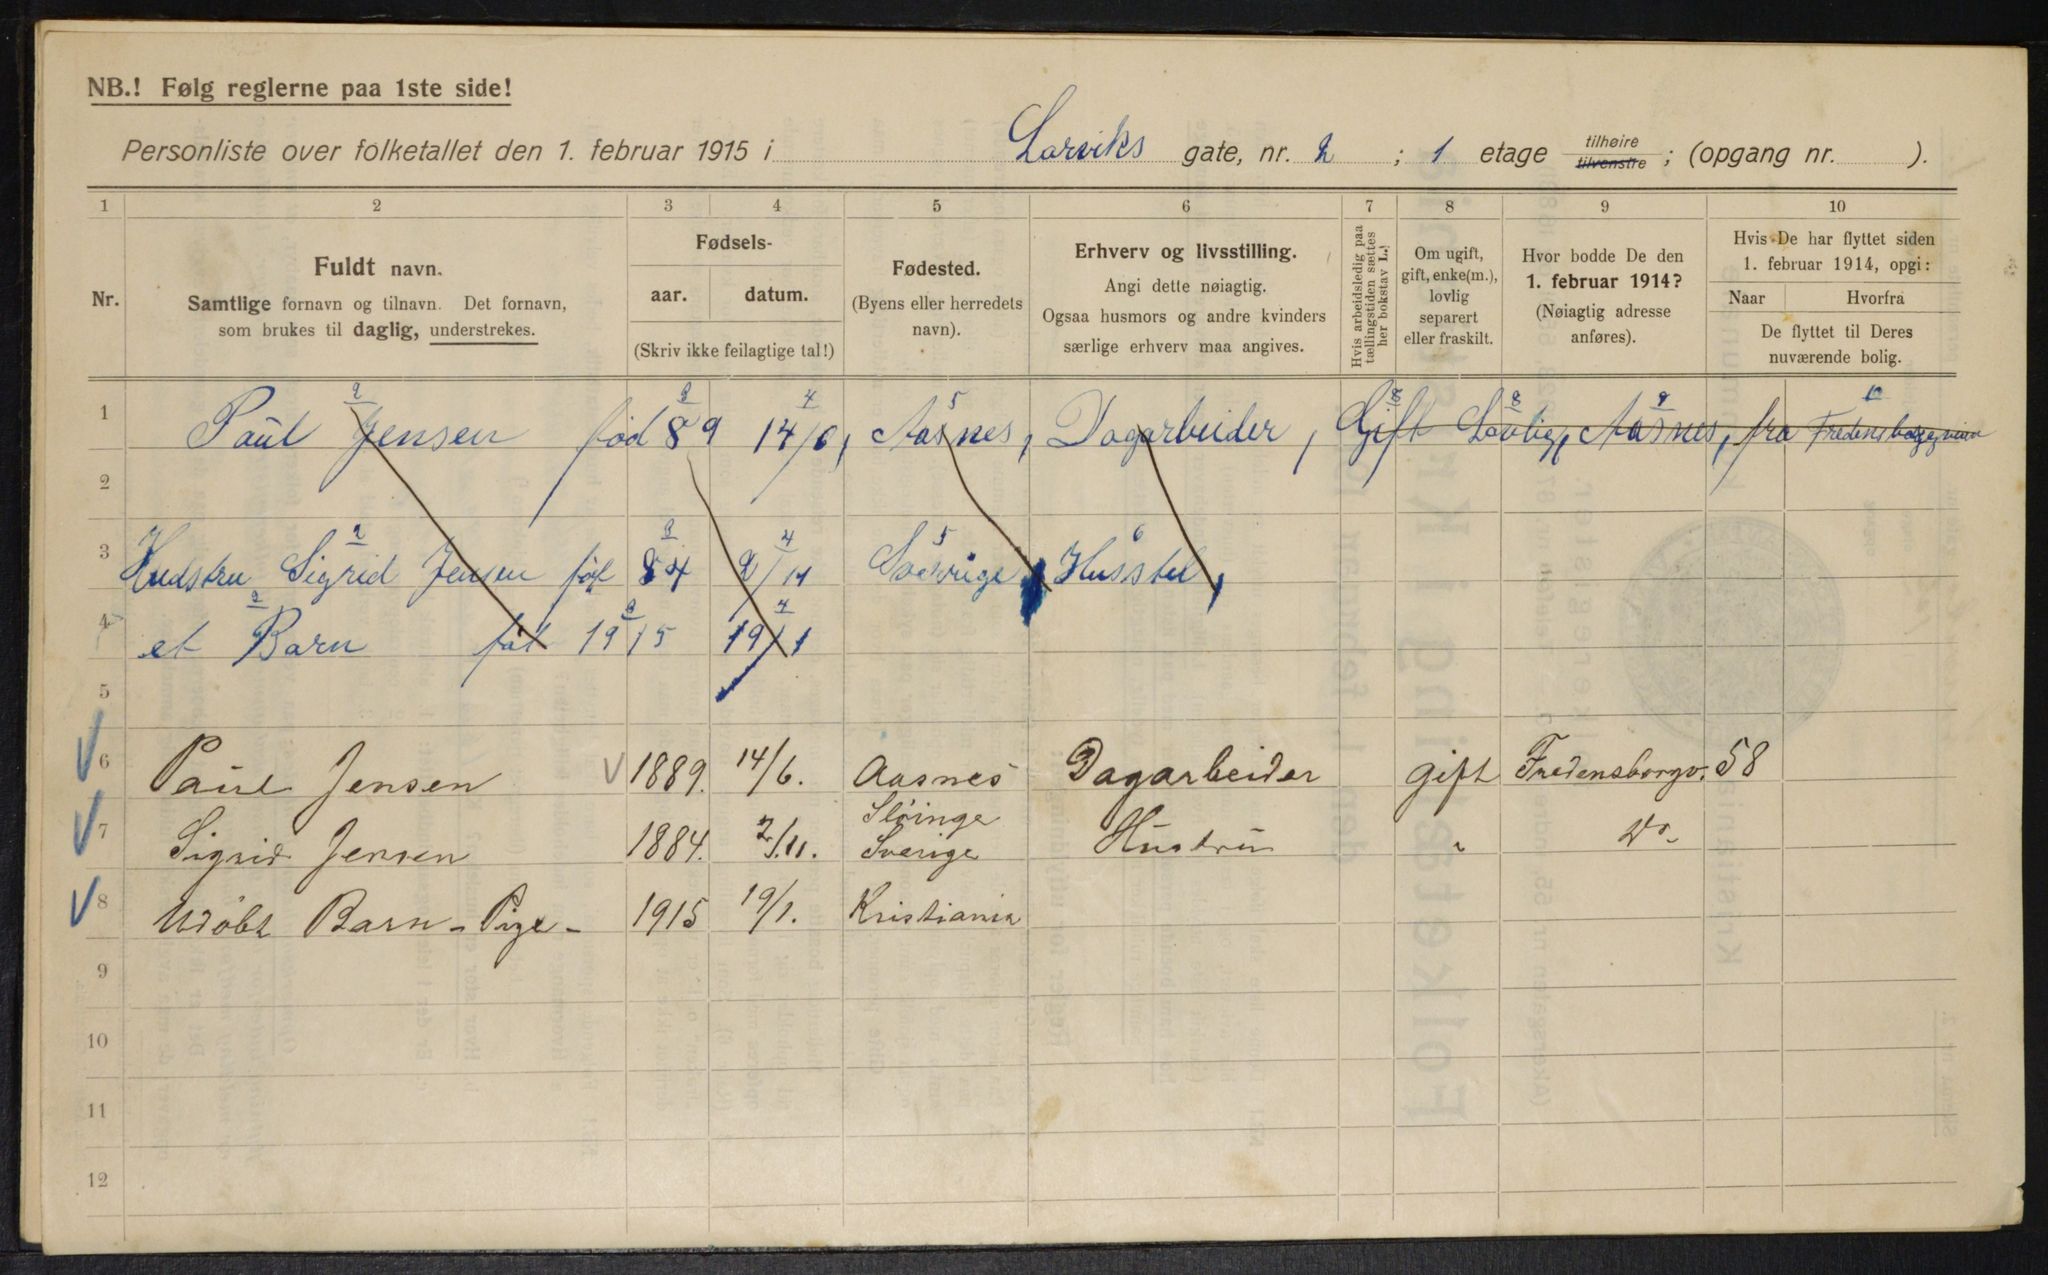 NB.! Følg reglerne paa 1ste side!
Personliste over folketallet den 1. februar 1915 i Larviks gate, nr. 2 ; 1 etage tilhøire tilvenstre ; (opgang nr. ).
1 2 3 4 5 6 7 8 9 10
Nr.
Fuldt navn.
Samtlige fornavn og tilnavn. Det fornavn,
som brukes til daglig, understrekes.
Fødsels-
aar. datum.
(Skriv ikke feilagtige tal!)
Fødested.
(Byens eller herredets
navn).
Erhverv og livsstilling.
Angi dette nøiagtig.
Ogsaa husmors og andre kvinders
særlige erhverv maa angives.
Hvis arbeidsledig paa
tællingstiden sættes
her bokstav L.!
Om ugift,
gift, enke(m.),
lovlig
separert
eller fraskilt.
Hvor bodde De den
1. februar 1914?
(Nøiagtig adresse
anføres).
Hvis De har flyttet siden
1. februar 1914, opgi:
Naar Hvorfra
De flyttet til Deres
nuværende bolig.
2 3 4 5 8 8 9 10
1 Paul Jensen fød 89 14/6, Aasnes, Dagarbeider, Gift Lovlig, Aasnes, fra
2
2 3 4 5 6
3 Sigrid Jensen 84 2/11 Husstel,
2 3 4
4 et Barn føt 1915 19/1
5
6 Paul Jensen 1889. 14/6. Aasnes Dagarbeider gift Fredensborgv. 58
Slöinge
7 Sigrid Jensen 1884. 2/11. Sverige Hustru " Do
8 Udöbt Barn - Pige - 1915 19/1. Kristiania
9
10
11
12